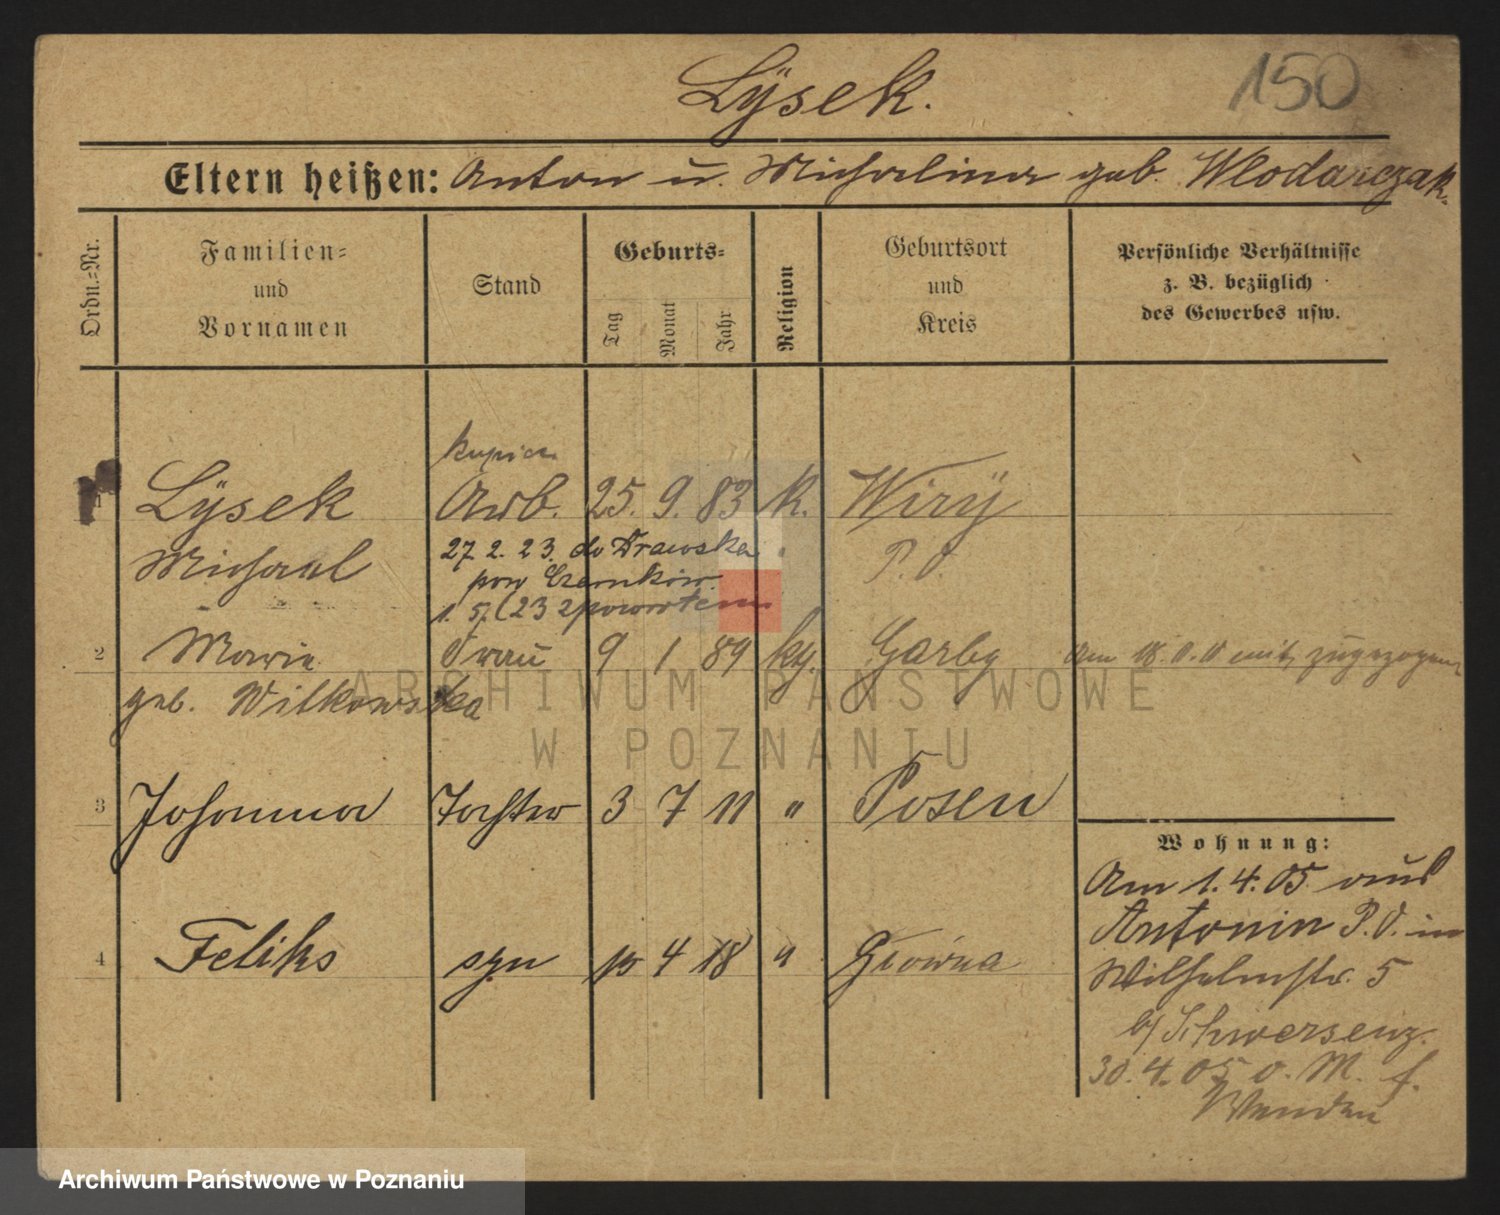 Lÿsek.
150
Eltern heißen: Anton u. Michalina geb. Wlodarczak.
Ordn.-Nr.
Familien- und Vornamen
Stand
Geburts-
Tag
Monat
Jahr
Religion
Geburtsort und Kreis
Persönliche Verhältnisse
z. B. bezüglich
des Gewerbes usw.
kupiec
1 Lÿsek Arb. 25. 9. 83 k. Wirÿ
Michael 27. 2. 23. do Drawska P. O.
pow Czarnków
1. 5. 23 z powrotem
2 Maria Frau 9 1 89 kg. Garby Am 18. 11. 11 mit zugezogen
geb. Witkowska
ARCHIWUM PAŃSTWOWE
W POZNANIU
3 Johanna Tochter 3 7 11 " Posen
Wohnung:
Am 1. 4. 05 aus
Antonin P. O. in
4 Feliks syn 10 4 18 " Główna
Wilhelmstr. 5
b/ Schwersenz.
30. 4. 05 o. M. f.
Archiwum Państwowe w Poznaniu